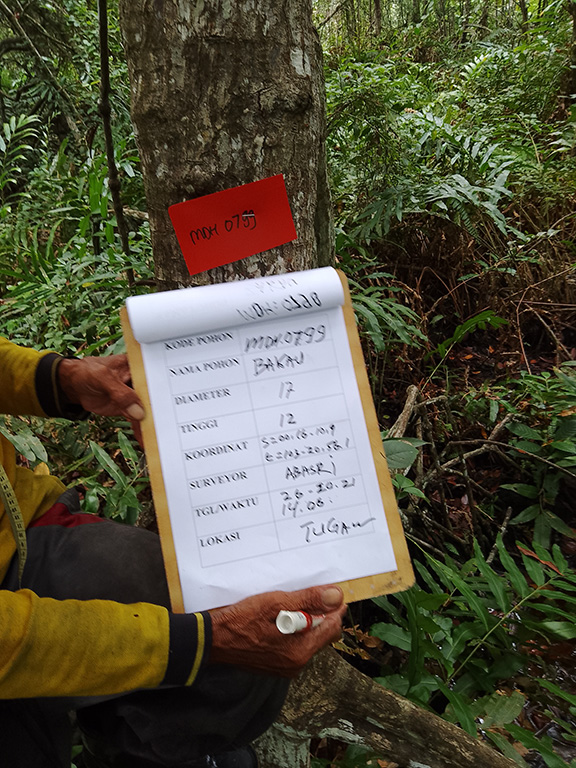 MDH 0799
KODE POHON MDH.0799
NAMA POHON BAKAU
DIAMETER 17
TINGGI 12
KOORDINAT S=00.16.10.9
E=103-20.58.1
SURVEYOR ABASRI
TGL/WAKTU 26-10.21
14.06.
LOKASI TUGAU